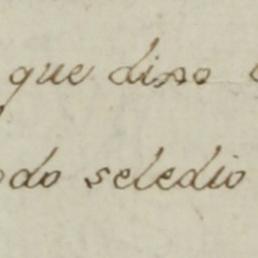 que dixo
odo seledio